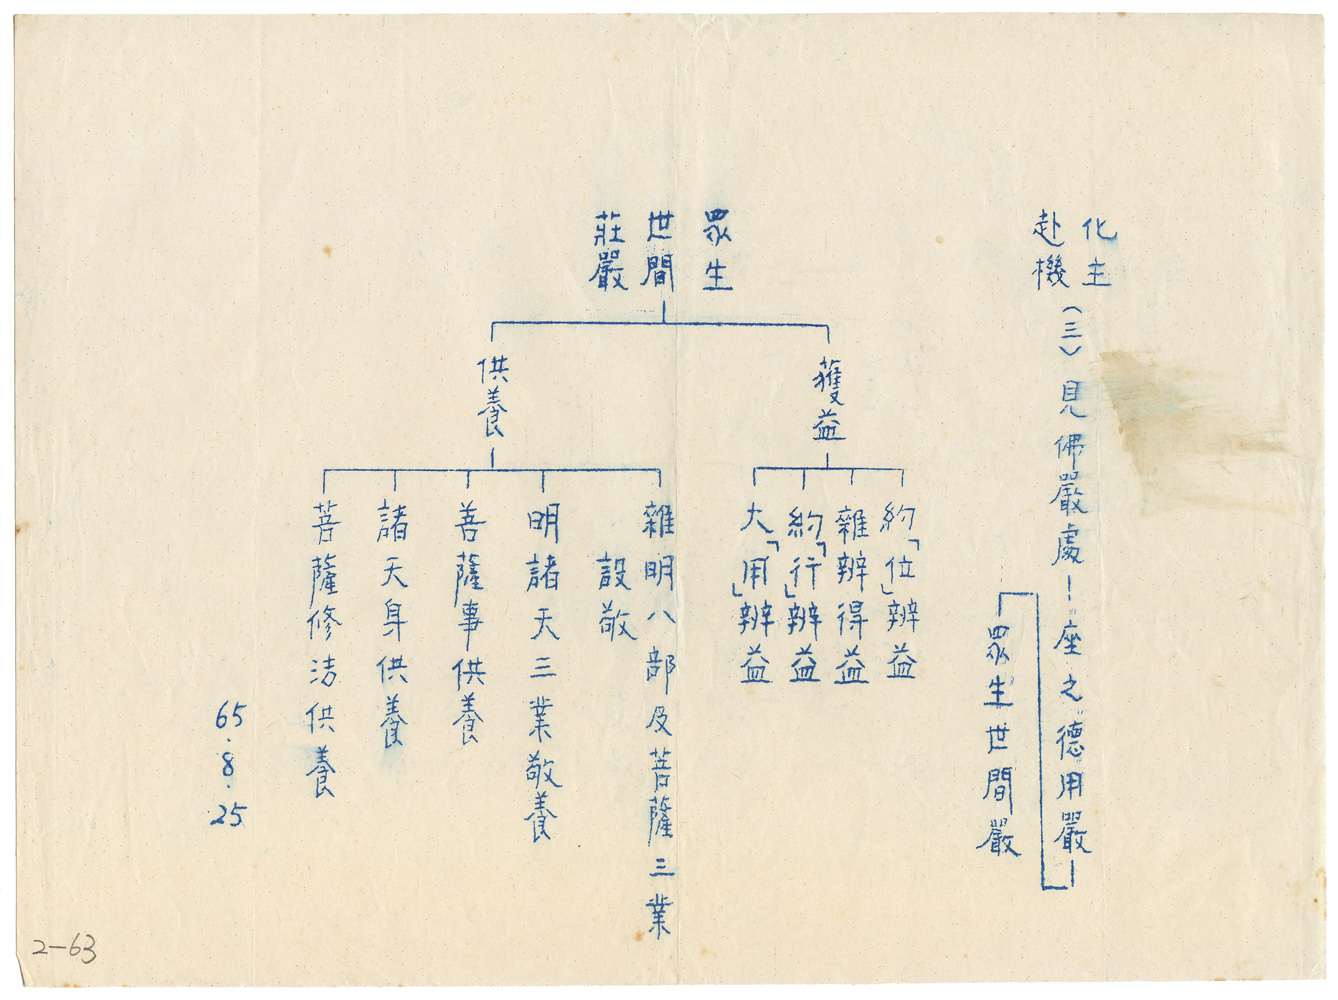 化主
赴機
(三)見佛嚴處—座之德用嚴—
眾生世間嚴
眾生
世間
莊嚴
獲益
約「位」辨益
雜辨得益
約「行」辨益
大「用」辨益
供養
雜明八部及菩薩三業
設敬
明諸天三業敬養
菩薩事供養
諸天身供養
菩薩修法供養
65.8.25
2-63